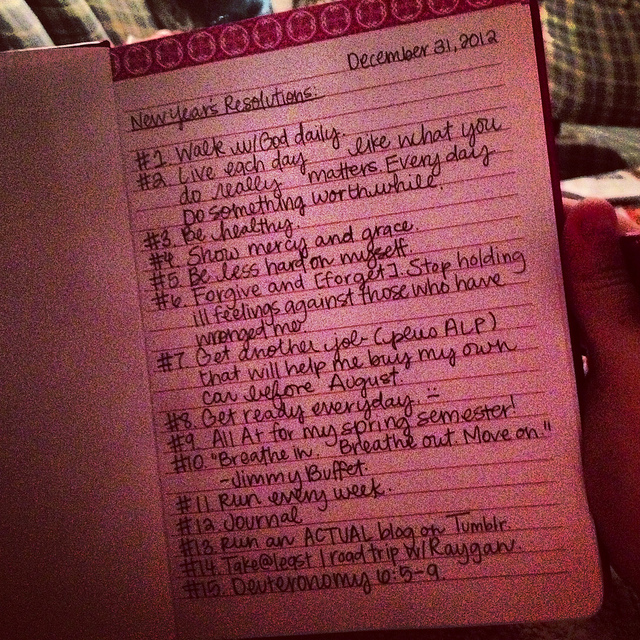 December 31, 2012
New Years Resolutions:
#1 Walk w/God daily.
#2 Live each day like what you
do really matters. Every day
Do something worthwhile.
#3. Be healthy.
#4 Show mercy and grace.
#5. Be less hard on myself.
#6. Forgive and [forget]. Stop holding
ill feelings against those who have
wronged me
#7. Get another job (plus ALP)
that will help me buy my own
car before August.
#8. Get ready everyday. :-
#9. All A+ for my spring semester!
#10. "Breathe in. Breathe out. Move on."
-Jimmy Buffet.
#11 Run every week.
#12 Journal
#13. Run an ACTUAL blog on Tumblr.
#14. Take @ least 1 road trip w/Raygan.
#15. Deuteronomy 6:5-9